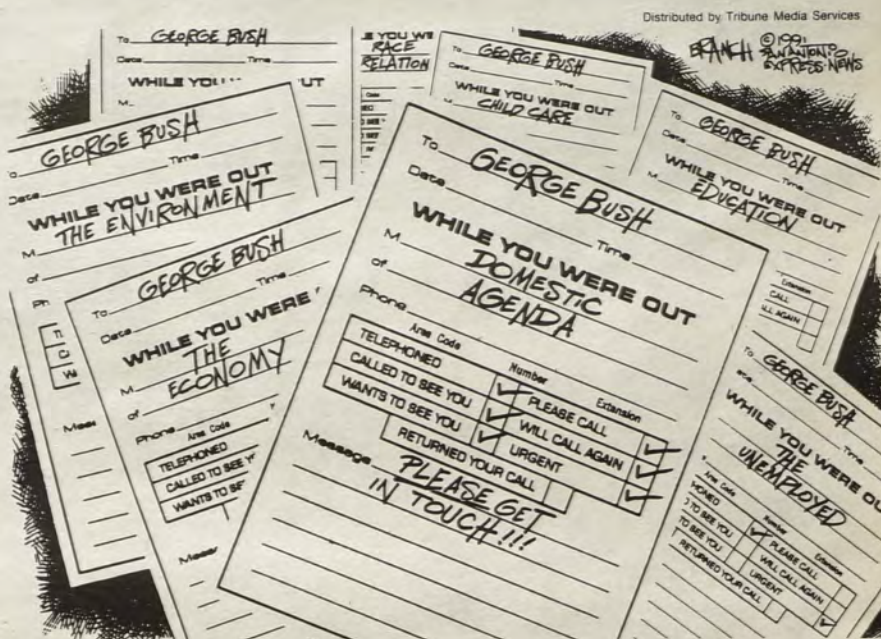 Distributed by Tribune Media Services
BRANCH ©1991
SAN ANTONIO
EXPRESS-NEWS
To GEORGE BUSH
Date Time
WHILE YOU OUT
M
E YOU WE
RACE
RELATION
To GEORGE BUSH
Date Time
WHILE YOU WERE OUT
CHILD CARE
To GEORGE BUSH
Date Time
WHILE YOU WERE OUT
M EDUCATION
Extension
CALL
ALL AGAIN
To GEORGE BUSH
Date Time
WHILE YOU WERE OUT
M THE ENVIRONMENT
of
Ph
Mess
To GEORGE BUSH
Date Time
WHILE YOU WERE
THE
M ECONOMY
of
Phone
Area Code
TELEPHONED
CALLED TO SEE Y
WANTS TO SE
Messa
To GEORGE BUSH
Date Time
WHILE YOU WERE OUT
M DOMESTIC
of AGENDA
Phone
Area Code Number Extension
TELEPHONED ✓ PLEASE CALL ✓
CALLED TO SEE YOU ✓ WILL CALL AGAIN ✓
WANTS TO SEE YOU ✓ URGENT ✓
RETURNED YOUR CALL
Message PLEASE GET
IN TOUCH!!!
To GEORGE BUSH
ate Time
WHILE YOU WERE OU
THE
UNEMPLOYED
Area Code Number Extension
HONED ✓ PLEASE CALL
D TO SEE YOU WILL CALL AGAIN
TO SEE YOU URGENT
RETURNED YOUR CALL ✓